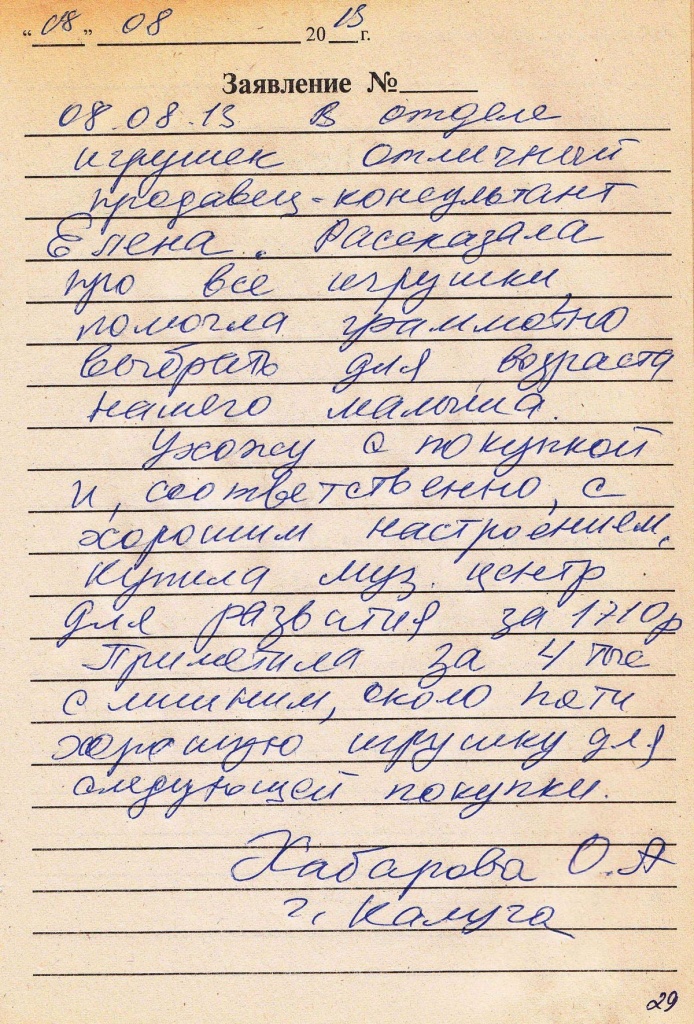 “08” 08 2013 г.
Заявление №
08.08.13 В отделе
игрушек отличный
продавец-консультант
Елена. Рассказала
про все игрушки,
помогла граммотно
выбрать для возраста
нашего малыша.
Ухожу с покупкой
и, соответственно, с
хорошим настроением.
Купила муз. центр
для развития за 1710р
Приметила за 4 тыс
с лишним, около пяти
хорошую игрушку для
следующей покупки.
Хабарова О.А
г. Калуга
29